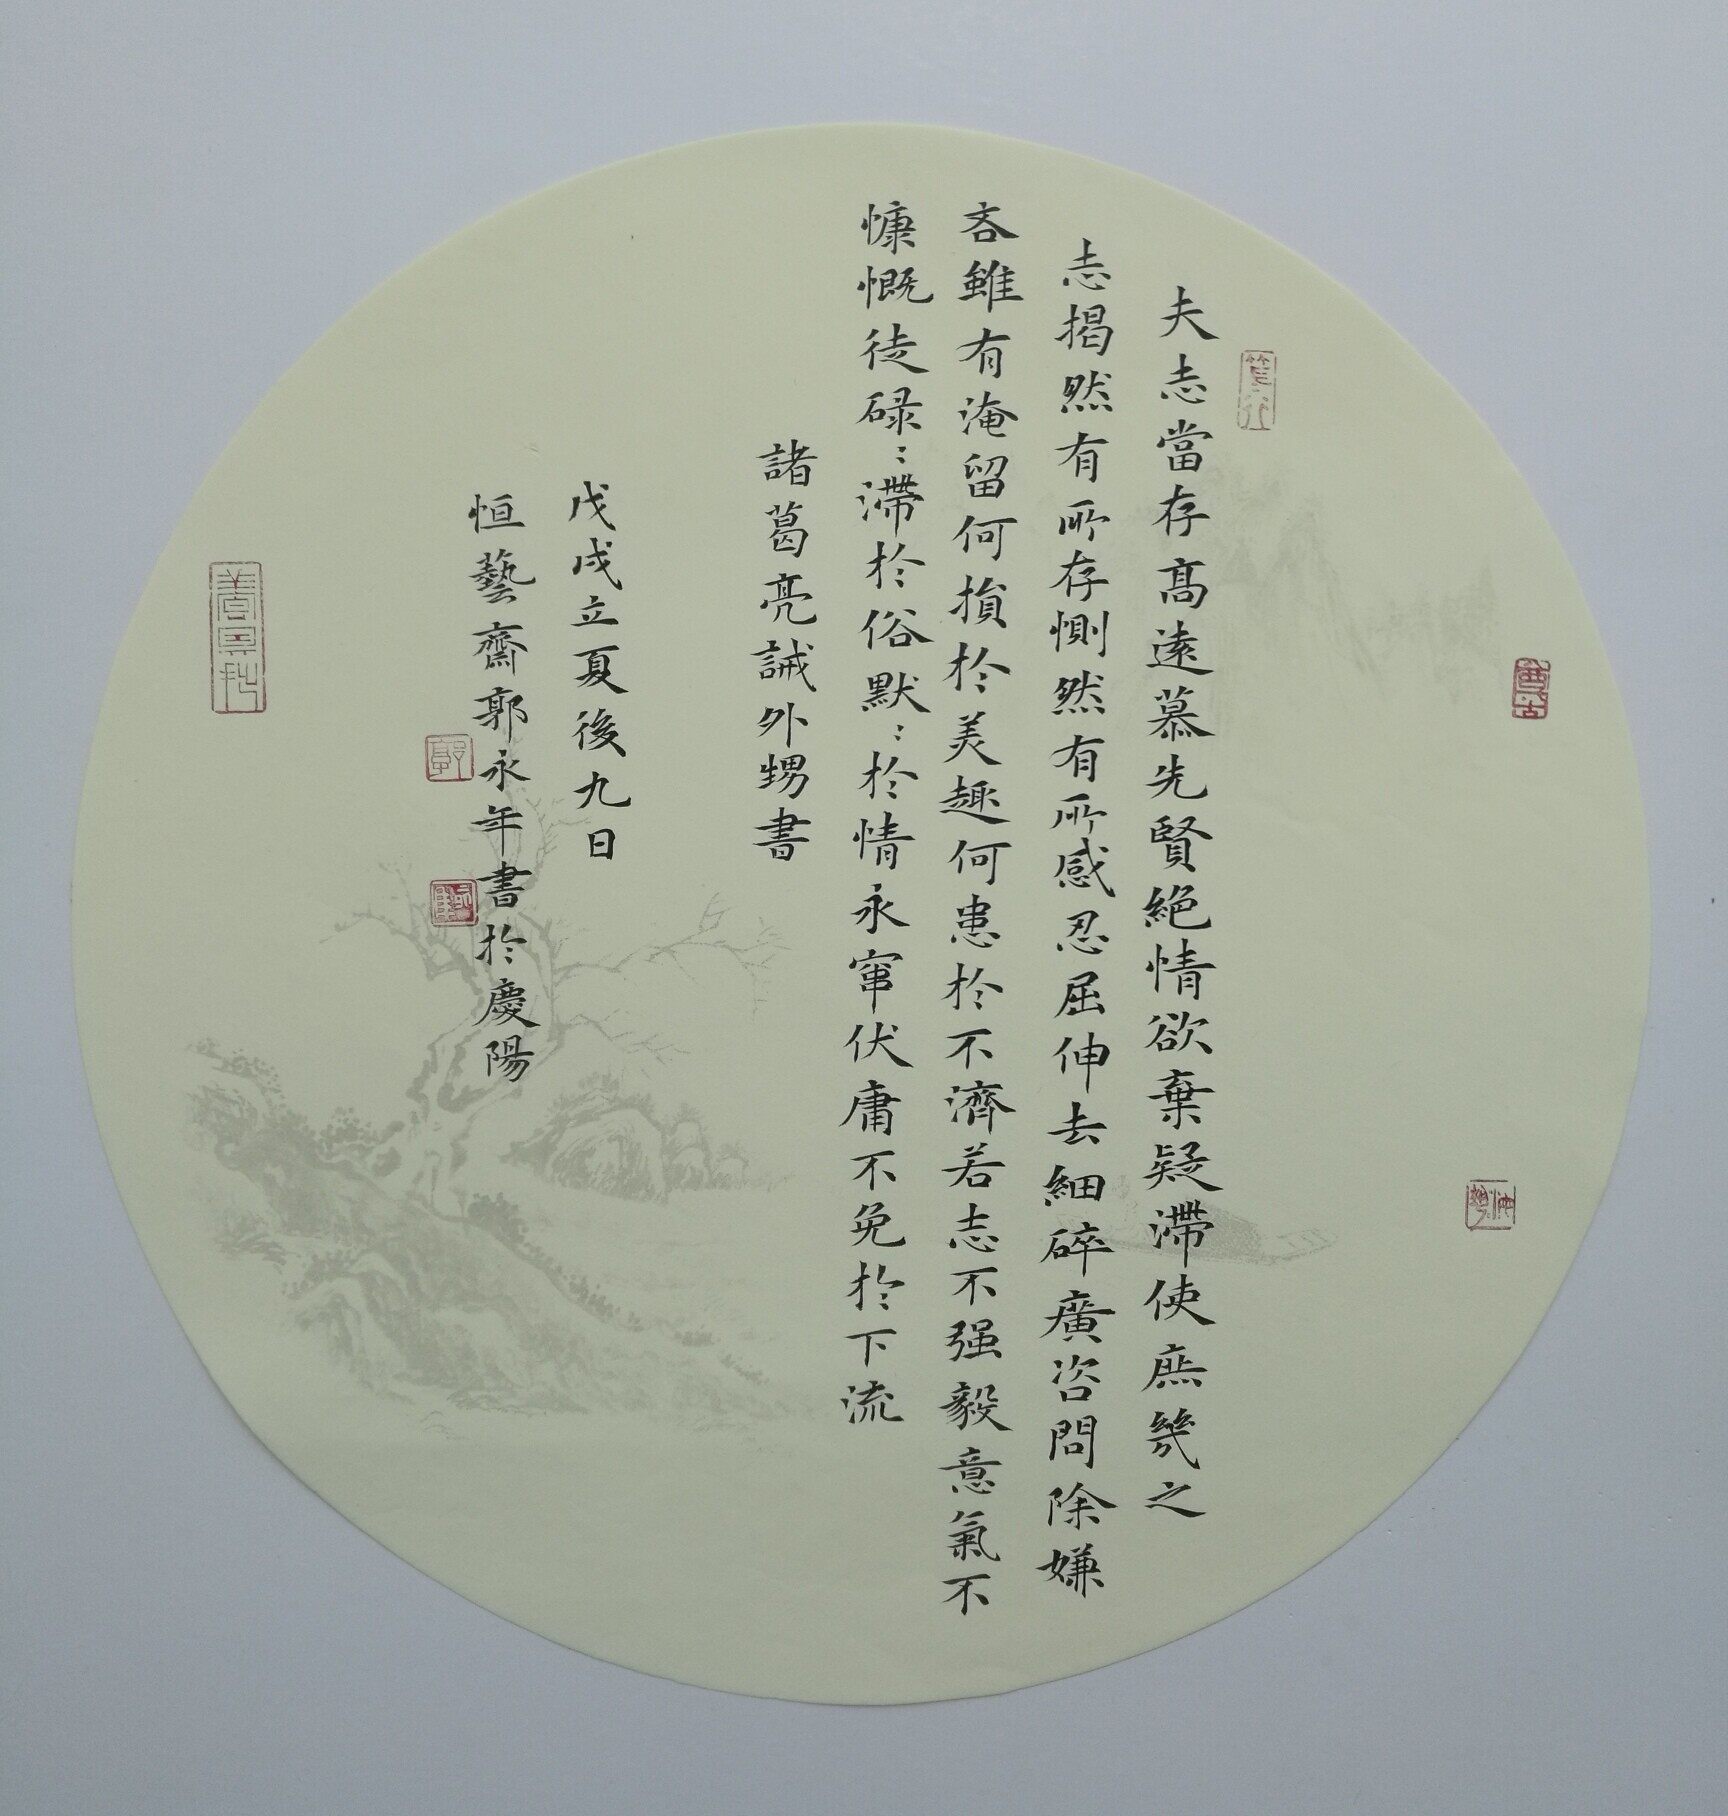 夫志當存髙遠慕先賢絶情欲棄疑滯使庶㡬之
志揭然有所存惻然有所感忍屈伸去細碎廣咨問除嫌
吝雖有淹留何損於美趣何患於不濟若志不强毅意氣不
慷慨徒碌〻滯於俗默〻於情永竄伏庸不免於下流
諸葛亮誡外甥書
戊戌立夏後九日
恒藝齋郭永年書於慶陽